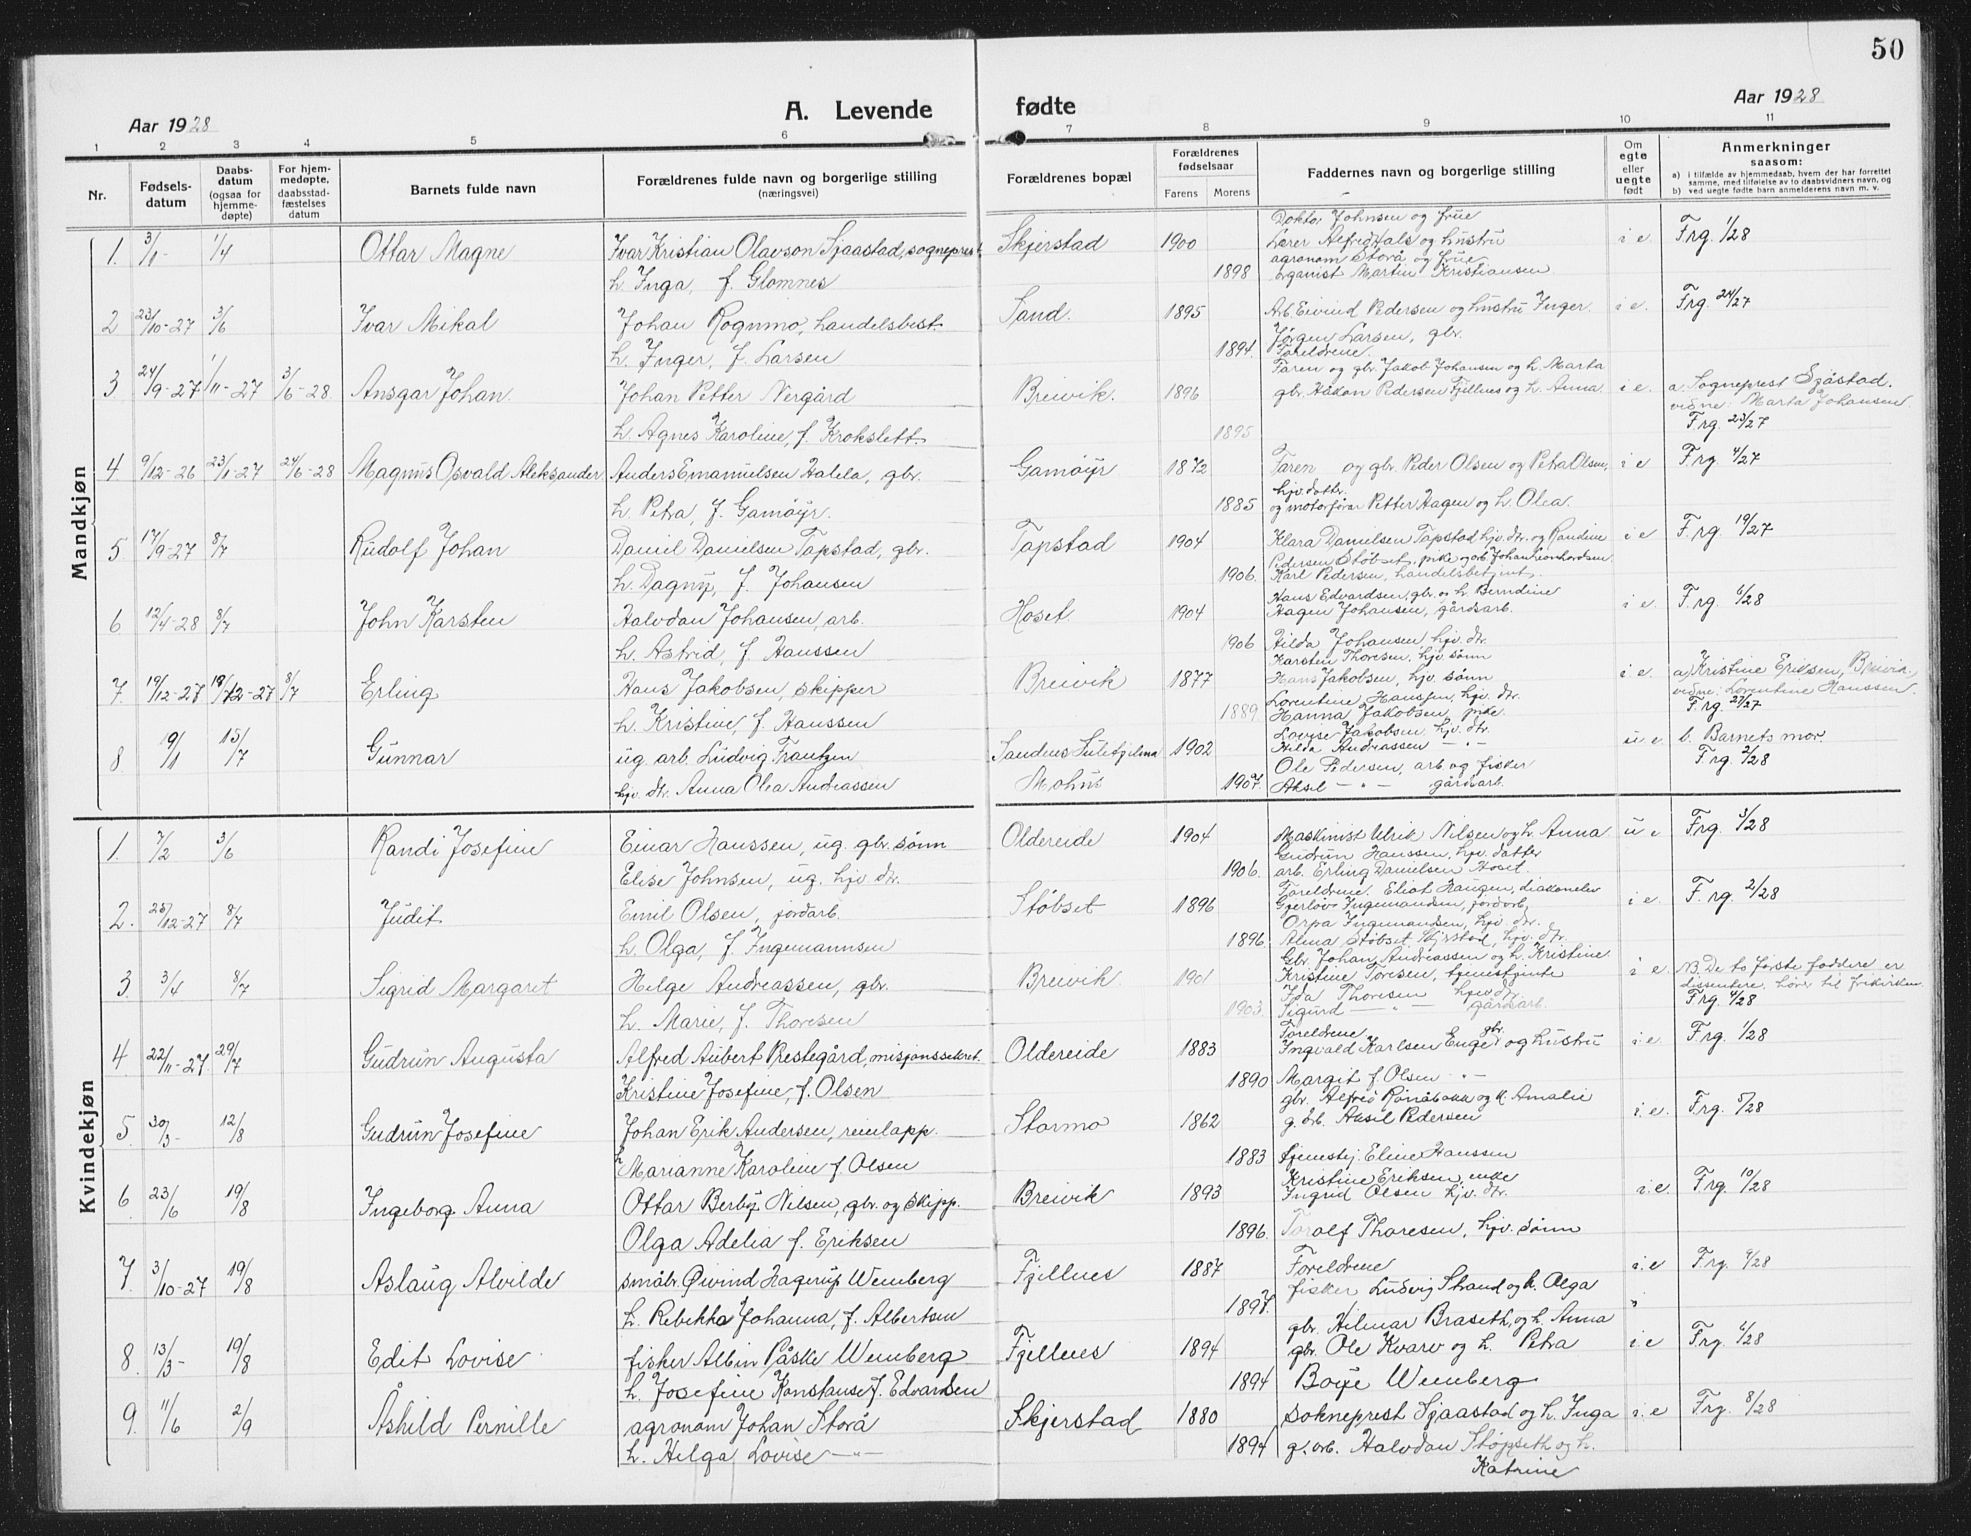 50
Aar 1928
A. Levende fødte
Aar 1928
1 2 3 4 5 6 7 8 9 10 11
Nr.
Fødsels-datum
Daabs-datum (ogsaa for hjemme-døpte)
For hjem-medøpte, daabsstad-fæstelses datum
Barnets fulde navn
Forældrenes fulde navn og borgerlige stilling (næringsvei)
Forældrenes bopæl
Forældrenes fødselsaar
Farens Morens
Faddernes navn og borgerlige stilling
Om egte eller uegte født
Anmerkninger saasom:
a) i tilfælde av hjemmedaab, hvem der har forrettet samme, med tilføielse av to daabsvidners navn, og
b) ved uegte fødte barn anmelderens navn m. v.
Mandkjøn
1. 3/1- 1/4 Ottar Magne Ivar Kristian Olavson Sjaastad, sogneprest, Skjerstad 1900 Doktor Johnsen og frue i e. Frg. 1/28
Lærer Alfred Hals og hustru
agronom Storå og frue
h. Inga, f. Glomnes 1898 organist Martin Kristiansen
2 23/10-27 3/6 Ivar Mikal Johan Rognmo, handelsbest. Sand. 1895 Arb. Eivind Pedersen og hustru Inger. i e. Frg. 24/27
Jørgen Larsen, gbr.
h. Inger, f. Larsen 1894. Foreldrene.
3 24/9-27 1/11-27 3/6-28 Ansgar Johan. Johan Petter Nergård Breivik. 1896 Faren og gbr. Jakob Johansen og h. Marta
gbr. Håkon Pedersen Fjellnes og h. Anna. i e. a. Sogneprest Sjåstad.
vidne: Marta Johansen.
h. Agnes Karoline, f. Krokslett. 1895 Frg. 23/27
4 9/12-26 23/1-27 24/6-28 Magnus Osvald Aleksander Anders Emanuelsen Halela, gbr. Gamøyr 1872 Faren og gbr. Peder Olsen og Petra Olsen, i e Frg. 4/27
hjv. dattr.
h. Petra, f. Gamøyr. 1885 og motorfører Petter Hagen og h. Olea.
5 17/9-27 8/7 Rudolf Johan Daniel Danielsen Tapstad, gbr. Tapstad 1904 Klara Danielsen Tapstad hjv. dtr. og Randine i e F.rg. 19/27
Pedersen Støbset, pike og arb. Johan Leonhardsen
h. Dagny, f. Johansen 1906. Karl Pedersen, handelsbetjent.
6 12/4-28 8/7 John Karsten Halvdan Johansen, arb. Hoset 1904 Hans Edvardsen, gbr. og h. Berndine
Hagen Johansen, gårdsarb. i e. F.rg. 6/28
h. Astrid, f. Hanssen 1906 Hilda Johansen hjv. dtr.
Karsten Thoresen, hjv. sønn
7 19/12-27 18/12-27 8/7 Erling Hans Jakobsen, skipper Breivik 1877 Hans Jakobsen, hjv. sønn i e. a) Kristine Eriksen, Breivik.
vidne: Lorentine Hanssen.
Lorentine Hanssen, hjv. dtr.
h. Kristine, f. Hanssen 1889. Hanna Jakobsen, pike. F.rg. 27/27
8 9/1 15/7 Gunnar ug. arb. Ludvig Frantzen Sandnes Sulitjelma 1902 Lovise Jakobsen hjv. dtr.
Hilda Andreassen - " - u e b. Barnets mor
Ole Pedersen, arb. og fisker F.rg. 2/28
hjv. dtr. Anna Olea Andreassen Mohus 1907. Aksel - " - gårdsarb.
Kvindekjøn
1. 7/2 3/6 Randi Josefine Einar Hanssen, ug. gbr. sønn Oldereide 1904 Maskinist Ulrik Nilsen og h. Anna u e Frg. 3/28
Gudrun Hanssen, hjv. datter
Elise Johnsen, ug. hjv. dtr. 1906. arb. Erling Danielsen Hoset.
2. 25/12-27 8/7 Judit Emil Olsen, jordarb. Støbset 1896 Foreldrene. Eliot Haugen, diakonelev
Gjerløv Ingemansen, jordarb, i e. F.rg. 2/28
Orpa Ingemansen, hjv. dtr.
h. Olga, f. Ingemannsen 1896. Alma Støbset, Skjerstad, hjv. dtr.
3. 3/4 8/7 Sigrid Margaret Helge Andreassen, gbr. Breivik 1901 Gbr. Johan Andreassen og h. Kristine
Kristine Toresen, tjenestjente i e. NB. De to første faddere er
dissentere, hører til frikirken.
Ida Thoresen hjv. dtr.
h. Marie, f. Thoresen 1903. Sigurd - " - gårdsarb. Frg. 4/28
4. 22/11-27 29/7 Gudrun Augusta Alfred Aubert Prestegård, misjonssekret. Oldereide 1883 Foreldrene
Ingvald Karlsen Enge gbr. og hustru i e. Frg. 1/28
Kristine Josefine, f. Olsen 1890 Margit f. Olsen - " -
5. 30/3- 12/8 Gudrun Josefine Johan Erik Andersen, reinlapp. Stormo 1862 gbr. Alfred Rønåbakk og h. Amalie
g. arb. Aksel Pedersen i. e. Frg. 5/28
h. Marianne Karoline f. Olsen 1883 tjenestj. Eline Hanssen
6 23/6 19/8 Ingeborg Anna Ottar Berboj Nilsen, gbr. og skipp. Breivik 1893 Kristine Eriksen, enke
Ingrid Olsen hjv. dtr. i. e. Frg. 10/28
Olga Adelia f. Eriksen 1896. Toralf Thoresen, hjv. sønn
7. 3/10-27 19/8 Aslaug Alvilde småbr. Øivind Hagerup Wenberg Fjellnes 1887 Foreldrene i. e Frg. 9/28
fisker Ludvig Strand og h. Olga
h. Rebekka Johanna, f. Albertsen 1897. gbr. Hilmar Braseth, og h. Anna "
8. 13/3- 19/8 Edit Lovise fisker Albin Påske Wenberg Fjellnes 1894 gbr. Ole Kvarv og h. Petra i. e Frg. 6/28
h. Josefine Konstanse f. Edvardsen 1894 Boye Wenberg
9. 11/6 2/9 Åshild Pernille agronom Johan Storå Skjerstad 1880 sokneprest Sjaastad og h. Inga i. e Frg. 8/28
h. Helga Lovise - " - 1894 g. arb. Halvdan Støpseth og h.
Katrine